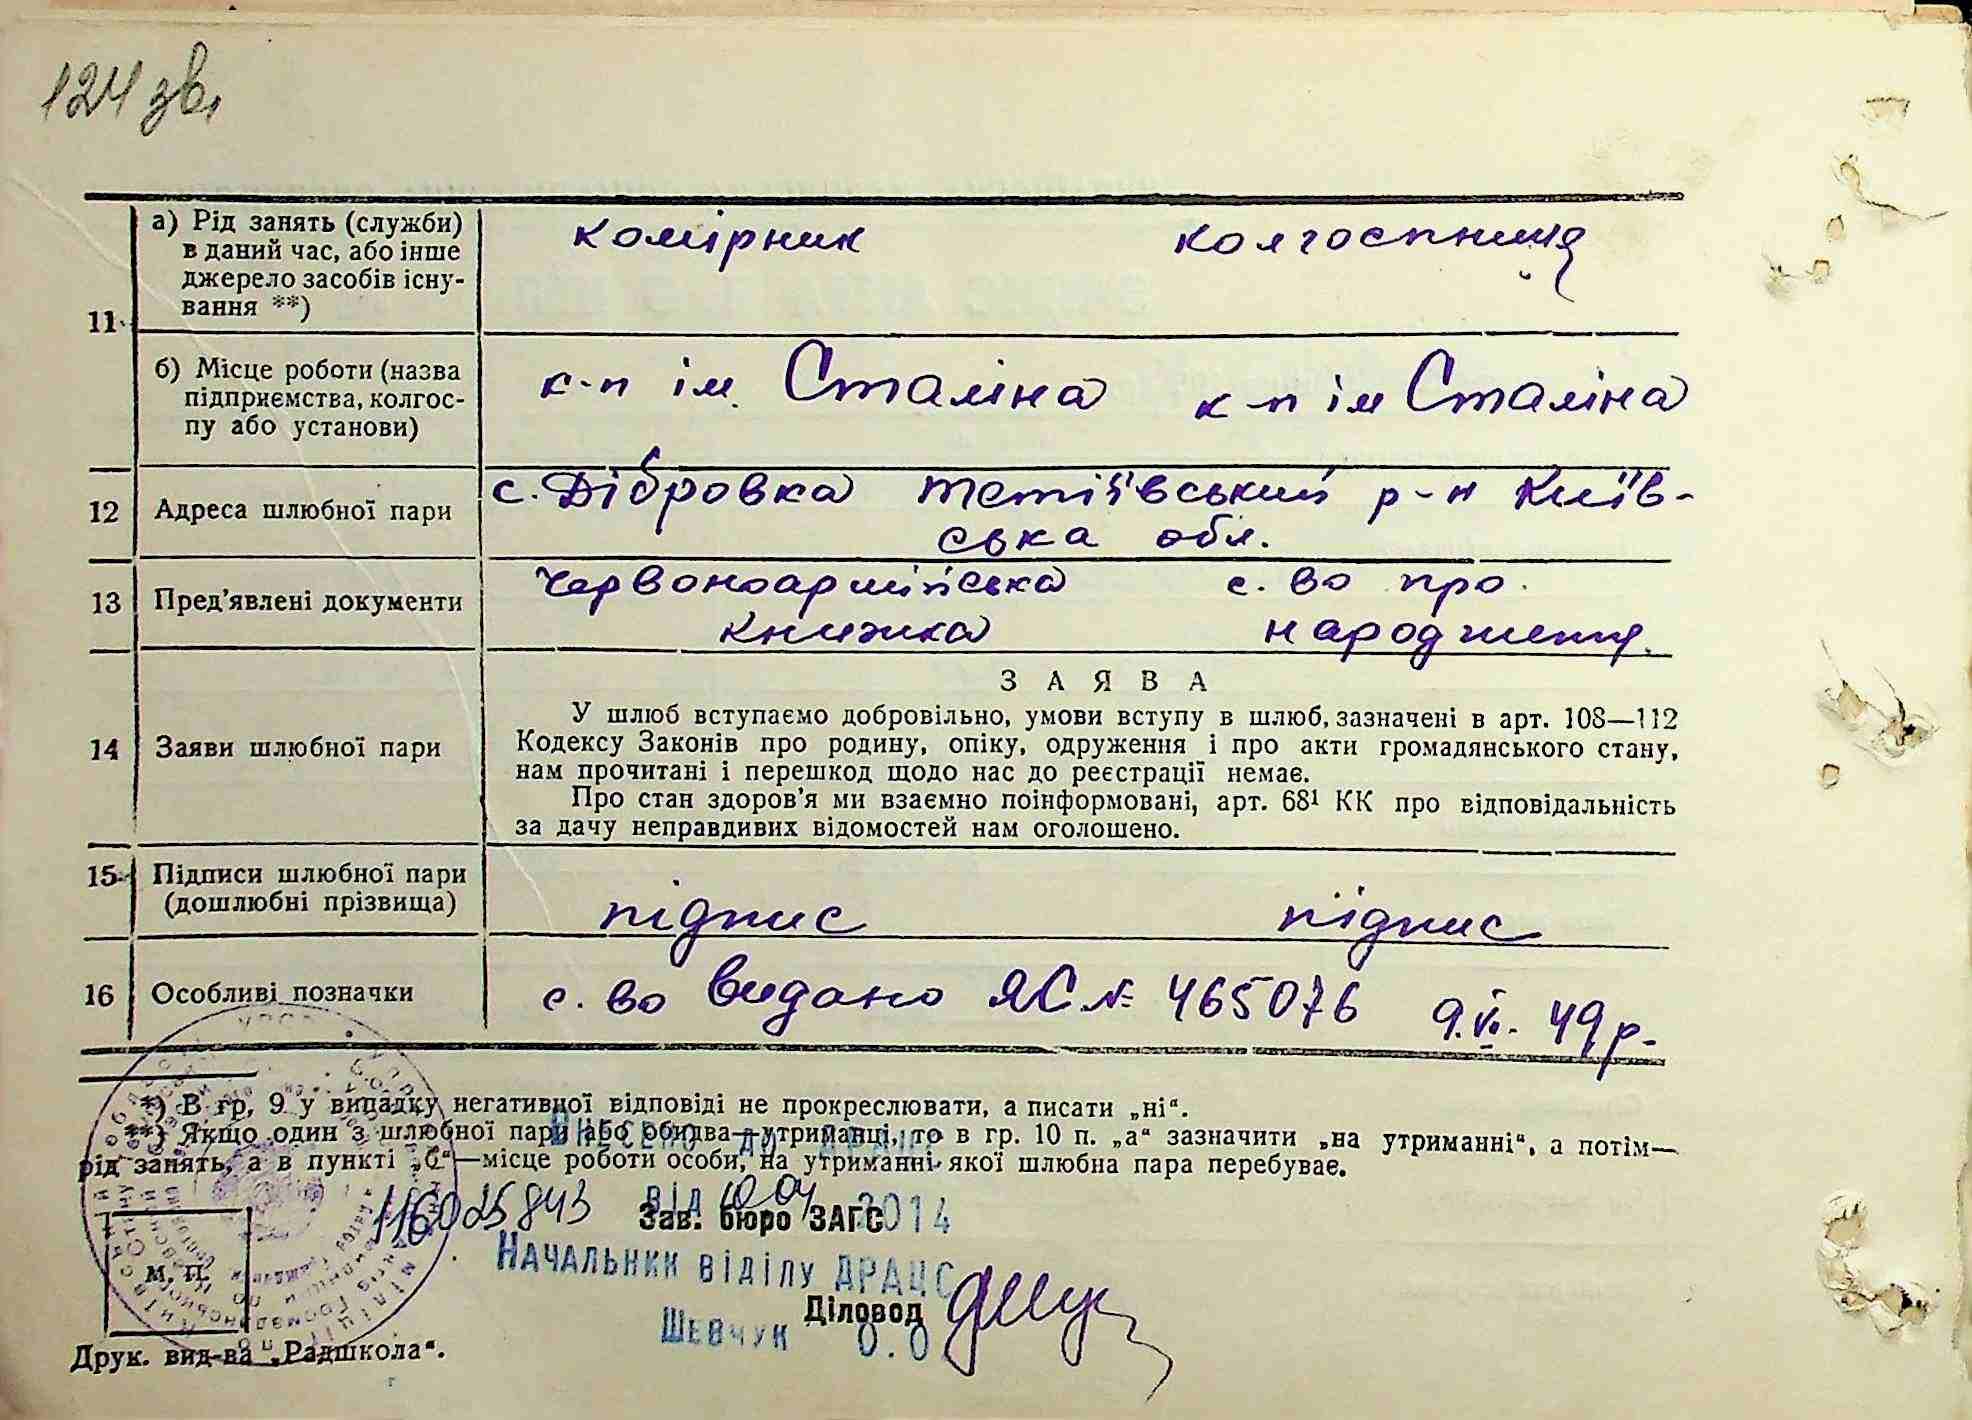 124 зв.
11
а) Рід занять (служби)
в даний час, або інше
джерело засобів існу-
вання **)
комірник колгоспниця
б) Місце роботи (назва
підприємства, колгос-
пу або установи)
к-п ім. Сталіна к-п ім Сталіна
12 Адреса шлюбної пари
с. Дібровка Тетіївський р-н Київ-
ська обл.
13 Пред'явлені документи
Червоноармійська с. во про
книжка народження.
З А Я В А
14 Заяви шлюбної пари
У шлюб вступаємо добровільно, умови вступу в шлюб, зазначені в арт. 108—112
Кодексу Законів про родину, опіку, одруження і про акти громадянського стану,
нам прочитані і перешкод щодо нас до реєстрації немає.
Про стан здоров'я ми взаємно поінформовані, арт. 68¹ КК про відповідальність
за дачу неправдивих відомостей нам оголошено.
15 Підписи шлюбної пари
(дошлюбні прізвища)
підпис підпис
16 Особливі позначки
с. во видано ЯС № 465076 9.VI. 49 р.
*) В гр. 9 у випадку негативної відповіді не прокреслювати, а писати „ні“.
**) Якщо один з шлюбної пари або обидва—утриманці, то в гр. 10 п. „а“ зазначити „на утриманні“, а потім—
рід занять, а в пункті „б“—місце роботи особи, на утриманні якої шлюбна пара перебуває.
Внесено до ДРАЦС
116025843 від 2014
Зав. бюро ЗАГС
Начальник відділу ДРАЦС
М. П.
Діловод
Шевчук О.О.
Друк. вид-ва „Радшкола“.